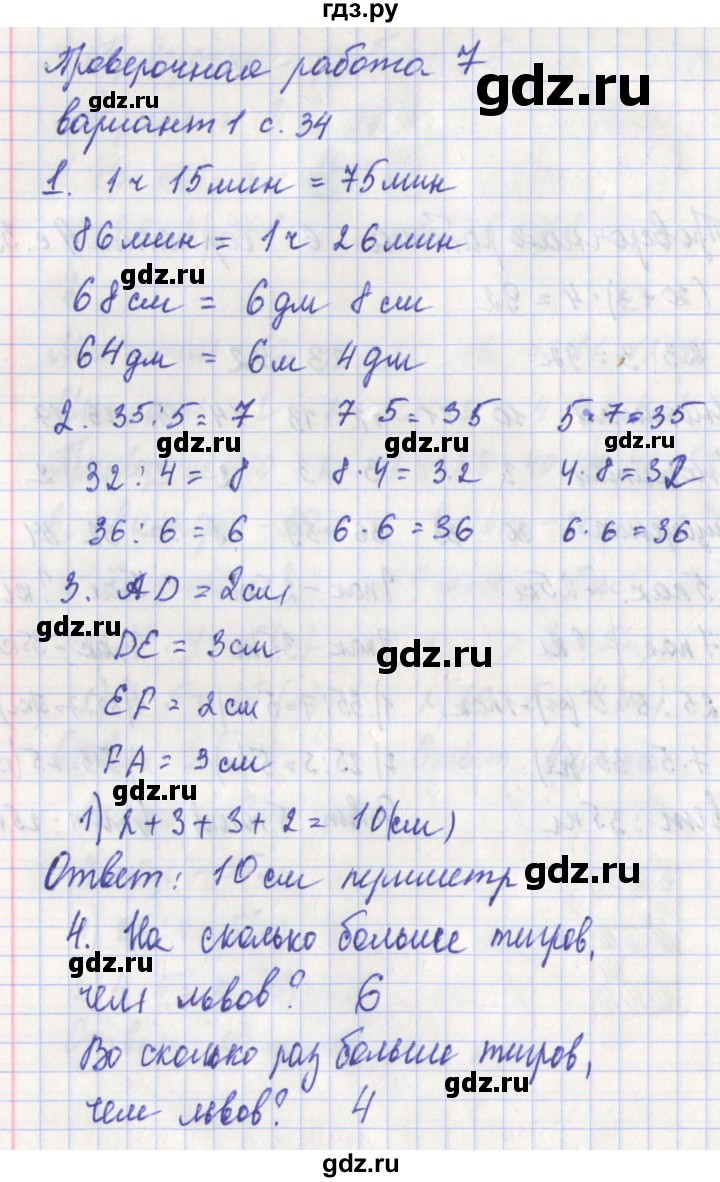 гдз.ру
Проверочная работа 7
gdz.ru
gdz.ru
вариант 1 с. 34
1. 1 ч 15 мин = 75 мин
86 мин = 1 ч 26 мин
gdz.ru
68 см = 6 дм 8 см
64 дм = 6 м 4 дм
2. 35 : 5 = 7 7 · 5 = 35 5 · 7 = 35
gdz.ru gdz.ru gdz.ru
32 : 4 = 8 8 · 4 = 32 4 · 8 = 32
36 : 6 = 6 6 · 6 = 36 6 · 6 = 36
3. AD = 2 см
gdz.ru
DE = 3 см
gdz.ru
EF = 2 см
FA = 3 см
gdz.ru
1) 2 + 3 + 3 + 2 = 10 (см)
Ответ: 10 см периметр
gdz.ru
4. На сколько больше тигров,
gdz.ru
чем львов? 6
Во сколько раз больше тигров,
gdz.ru
чем львов? 4
gdz.ru